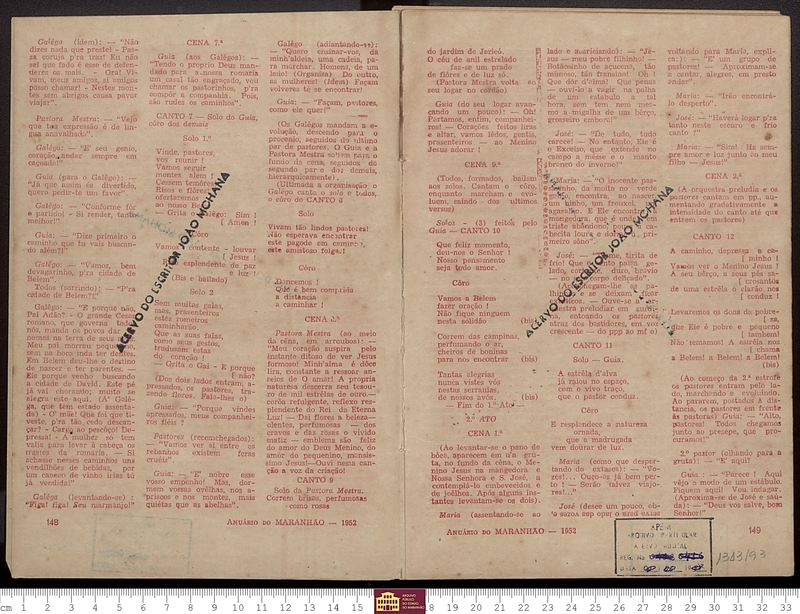 Galégo (idem): — "Não
dizes nada que preste! - Pas-
sa coruja p'ra traz! Eu não
sei que fado é esse de defen-
deres os maus. - Ora! Vi-
vam, meus amigos, si amigos
posso chamar! - Nestes mon-
tes sem abrigos causa pavor
viajar".
Pastora Mestra: — "Vejo
que tua expressão é de lin-
gua anavalhada".
Galégo: — "E' seu genio,
coração, andar sempre em
caçoada!"
Guia (para o Galégo): —
"Já que assim és divertido,
quero pedir-te um favor"
Galégo: — "Conforme fôr
o partido! - Si render, tanto
melhor!"
Guia: — "Dize primeiro o
caminho que tu vais buscan-
do além?!"
Galégo: — "Vamos, bem
devagarinho, p'ra cidade de
Belem".
Todos (sorrindo): — "P'ra
cidade de Belem?!"
Galégo: — "E porque não,
Pai Adão? - O grande Cesar
romano, que governa toda
nós, manda os povos dar os
nomes na terra de seus avós.
Meu pai morreu pequenino,
sem na boca inda ter dentes.
Em Belem deu-lhe o destino
de nascer e ter parentes. —
Ele porque venho buscando
a cidade de David. Este pé
já vai chorando; muito se
alegra este aqui. (A' Galé-
ga, que tem estado assenta-
da) - O' mãe! Que foi que ti-
veste, p'ra tão cedo descan-
çar? - Carga ao pescôço! De-
pressa! - A mulher só tem
valia para levar à cabeça os
trastes da romaria. — Si
achasse nesses caminhos uns
vendilhões de bebidas, por
um caneco de vinho irias tú
já vendida!"
Galéga (levantando-se) :
"Figa! figa! Seu marmanjo!"
CENA 7.ª
Guia (aos Galégos): —
"Tendo o proprio Deus man-
dado para a nossa romaria
um casal tão engraçado, vou
chamar os pastorinhos, p'ra
compôr a companhia. Pois,
são rudes os caminhos".
CANTO 7 — Solo do Guia,
côro dos demais
Solo 1.º
Vinde, pastores,
vos reunir !
Vamos seguir
montes além !
Cessem temores,
Risos e flôres
ofertaremos
ao nosso Bem
— Grita o Galégo: Sim !
[ Amen !
Côro
Vamos contente - louvar
[ Jesus !
Rei esplendente de paz
e luz !
(Bis e bailado)
Solo 2
Sem muitas galas,
mês, presenteiros
estes romeiros
caminharão
Que as suas falas,
como seus gestos,
traduzam estas
do coração !
— Grita o Gai - E porque
[ não?
(Dos dois lados entram, a-
pressados, os pastores, tra-
zendo flores. Falo-lhes o)
Guia: — "Porque vindes
apressados, meus companhei-
ros fiéis ?
Pastores (reconchegados):
— "Vamos ver si entre os
rebanhos existem feras
crueis"
Guia: — "E' nobre esse
vosso empenho! Mas, dor-
mem vossas ovelhas, nos a-
priscos e nos montes, mais
quiétas que as abelhas".
Galégo (adiantando-se):
— "Quero ensinar-vos, dá
minh'aldeia, uma cadeia, pa-
ra marchar. Homens, de um
lado! (Organiza) Do outro,
as mulheres! (Idem) Façam
volveres té se encontrar!
Guia: — "Façam, pastores,
como ele quer!"
(Os Galégos mandam a e-
volução, descendo para o
procenio, seguidos do ultimo
par de pastores. O Guia e a
Pastora Mestra sobem para o
fundo da cena, seguidos do
segundo par e dos demais,
hierarquicamente).
(Ultimada a organisação o
Galégo canta o solo e todos,
o côro de CANTO 8
Solo
Vivam tão lindos pastores!
Não esperava encontrar
este pagode em caminho,
este amistoso folgar!
Côro
Dancemos !
Que é bem comprida
a distancia
a caminhar !
CENA 8.ª
Pastora Mestra (ao meio
da cêna, em arroubos): —
Meu coração suspira pelo
instante ditoso de ver Jesus
formoso! Minh'alma é dôce
lira, constante a ressoar an-
reios de O amar! A propria
naturesa descerra seu tesou-
ro de mil estrêlas de ouro—
corôa refulgente, reflexo res-
plendente do Rei da Eterna
Luz! — Di flores a beleza—
olentes, perfumosas — dos
cravos e das rosas o vivido
matiz — emblema são feliz
do amor do Deus Menino, do
amor do pequenino, ricnis-
simo Jesus!—Ouvi nesta can-
ção a voz da criação!
CANTO 9
Solo da Pastora Mestra.
Correm brisas, perfumosas
como rosas
148
ANUÁRIO DO MARANHÃO — 1952
do jardim de Jericó.
O céu de anil estrelado
faz-se um prado
de flôres e de luz só.
(Pastora Mestra volta ao
seu logar no cordão)
Guia (do seu logar avan-
çando um pouco): — Oh!
Pártamos, entim, companhei-
ros! — Corações feitos iras
e altar, vamos lédos, gentis,
presenteiros — ao Menino
Jesus adorar !
CENA 9.ª
(Todos, formados, bailam
aos solos. Cantam o côro,
enquanto marcham e evo-
luem, saindo dos ultimos
versos)
Solos - (3) feitos pelo
Guia — CANTO 10
Que feliz momento,
deu-nos o Senhor !
Nosso pensamento
seja todo amor.
Côro
Vamos a Belem
fazer oração!
Não fique ninguem
nesta solidão (bis)
Correm das campinas,
perfumando o ar,
cheiros de boninas
para nos encontrar (bis)
Tantas alegrias
nunca vistes vós
nestas serranias,
de nossos avós. (bis)
— Fim do 1.º Ato —
2.º ATO
CENA 1.ª
(Ao levantar-se o pano de
bôce, aparecem em u'a gru-
ta, no fundo da cêna, o Me-
nino Jesus na mangedoura e
Nossa Senhora e S. José, a
contemplá-lo embevecidos e
de joêlhos. Após alguns ins-
tantes levantam-se os dois).
Maria (assentando-se ao
lado e acariciando): — "Je-
sus — meu pobre filhinho! —
Bastãosinho de açucena, tão
mimoso, tão franzino! Oh !
Que dôr d'alma! Que penas
ao ouvi-lo a vagir na palha
de um estabulo a tal
hora, sem ter, nem mes-
mo a migalha de um bêrço,
grosseiro embora!"
José: — "De tudo, tudo
carece! — No entanto, Ele é
o Excelso, que extende no
campo a mésse e o manto
terreno do inverso!"
Maria: — "O inocente pas-
sarinho, da moita no verde
seio, encontra, ao nascer,
o ninho, um frouxel, um
agasalho. E Ele encontra a
mangedoura, que é onde jaz
triste abandono, para sua ca-
becita loura e dormir o pri-
meiro sôno"
José: — "Treme, tirita de
frio! Que o vento passa ge-
lado, cortante, duro, bravio
— no seu corpo delicado".
(Aconchegam-lhe as pa-
lhinhas e se deixam ficar
extáticos. - Ouve-se a or-
questra preludiar em surdi-
na, estando os pastores
atraz dos bastidores, em voz
crescente — do ppp ao mf o)
CANTO 11
Solo — Guia.
A estrêla d'alva
já raiou no espaço,
com o vivo traço,
que o pastor conduz.
Côro
E resplendece a natureza
corada,
que a madrugada
vem dourar de luz.
Maria (como que desper-
tando do extase): — "Vo-
zes!... Ouço-ós já bem per-
to ! — Serão talvez viajo-
res!..."
José (desce um pouco, ob-
voltando para Maria, expli-
ca:): — "E' um grupo de
pastores! — Aproximam-se
a cantar, alegres, em presto
andar".
Maria: — "Irão encontrá-
lo desperto".
José: — "Haverá logar p'ra
tanto neste escuro e frio
canto ?"
Maria: — "Sim! Ha sem-
pre amor e luz junto do meu
filho — Jesus!"
CENA 2.ª
(A orquestra preludia e os
pastores cantam em pp, au-
mentando gradativamente a
intensidade do canto até que
entrem os pastores)
CANTO 12
A caminho, depressa a ca-
[ minho !
Vamos ver o Menino Jesus !
A seu bêrço, a seus pés sa-
[ crosantos
de uma estrêla o clarão nos
[ conduz !
Levaremos os dons da pobre-
[ za,
que Ele é pobre e pequeno
[ tambem!
Não temamos! A estrêla nos
[ chama
a Belem! a Belem! a Belem!
(bis)
(Ao começo da 2.ª estrofe
os pastores entram pelo la-
do, marchando e evoluindo.
Ao pararem, postados à dis-
tancia, os pastores em frente
ás pastoras) Guia: — "Alto,
pastoras! Todos chegamos
junto ao presepe, que pro-
curamos!"
2.º pastor (olhando para a
gruta): — "E' aqui!
Guia: — "Parece ! Aqui
vêjo a modo de um estábulo.
Fiquem aqui! Vou indagar.
(Aproxima-se de José e saú-
da): — "Deus vos salve, bom
Senhor!"
ANUÁRIO DO MARANHÃO — 1952
149
ACERVO DO ESCRITOR JOAO MOHANA
ACERVO DO ESCRITOR JOAO MOHANA
APEM
ARQUIVO PARTICULAR
REG. Nº
DATA
1313/93
ARQUIVO PÚBLICO DO ESTADO DO MARANHÃO
cm 1 2 3 4 5 6 7 8 9 10 11 12 13 14 15 18 19 20 21 22 23 24 25 26 27 28 29 30 31 32 33